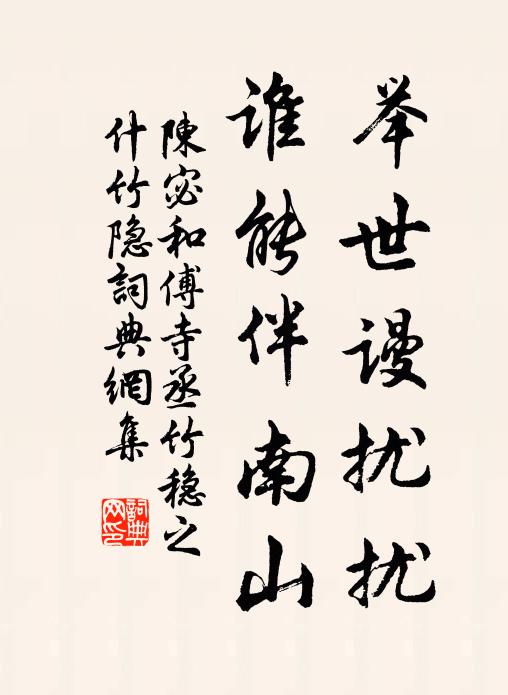 举世谩扰扰
谁能伴南山
陳宓和傅寺丞竹稳之
什竹隐詞典網集
詞典网印